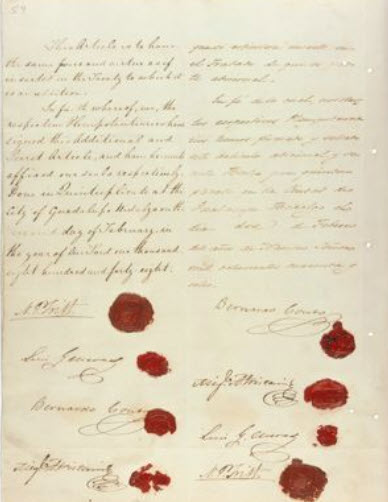 59
This Article is to have
the same force and virtue as if
inserted in the Treaty to which it
is an addition.
In faith whereof, we, the
respective Plenipotentiaries have
signed this Additional and
Secret Article, and have hereunto
affixed our seals respectively.
Done in Quintuplicate at the
City of Guadalupe Hidalgo on the
second day of February, in
the year of Our Lord one thousand
eight hundred and forty eight.
N. P. Trist
Luis G. Cuevas
Bernardo Couto
Migl. Atristain
el Tratado
adicional.
En fé de lo cual,
los respectivos Plenipotenciarios
hemos firmado y sellado
este Articulo adicional, y
secreto. Hecho por quintuplicado
en la Ciudad de
Guadalupe Hidalgo
dos de Febrero
del año de Nuestro Señor
mil ochocientos cuarenta y
ocho.
Bernardo Couto
Migl. Atristain
Luis G. Cuevas
N. P. Trist